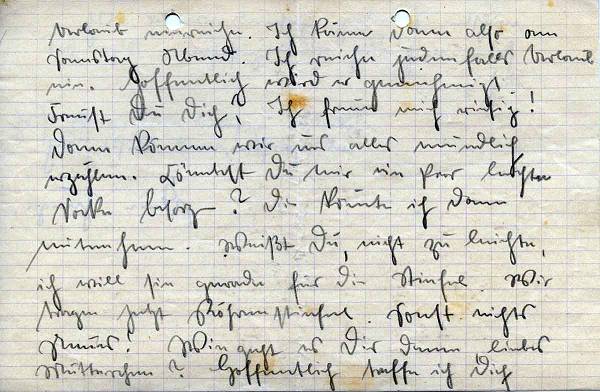 Urlaub einreiche. Ich käme dann also am
Samstag Abend. Ich reiche jedenfalls Urlaub
ein. Hoffentlich wird er genehmigt.
Freust Du Dich? Ich freue mich riesig!
Dann können wir uns alles mündlich
erzählen. Könntest Du mir ein Paar leichte
Socken besorg ? Die könnte ich dann
mitnehmen. Weißt Du, nicht zu leichte,
ich will sie gerade für die Stiefel. Wir
tragen jetzt Röhrenstiefel. Sonst nichts
Neues! Wie geht es Dir denn liebes
Mutterchen? Hoffentlich treffe ich Dich